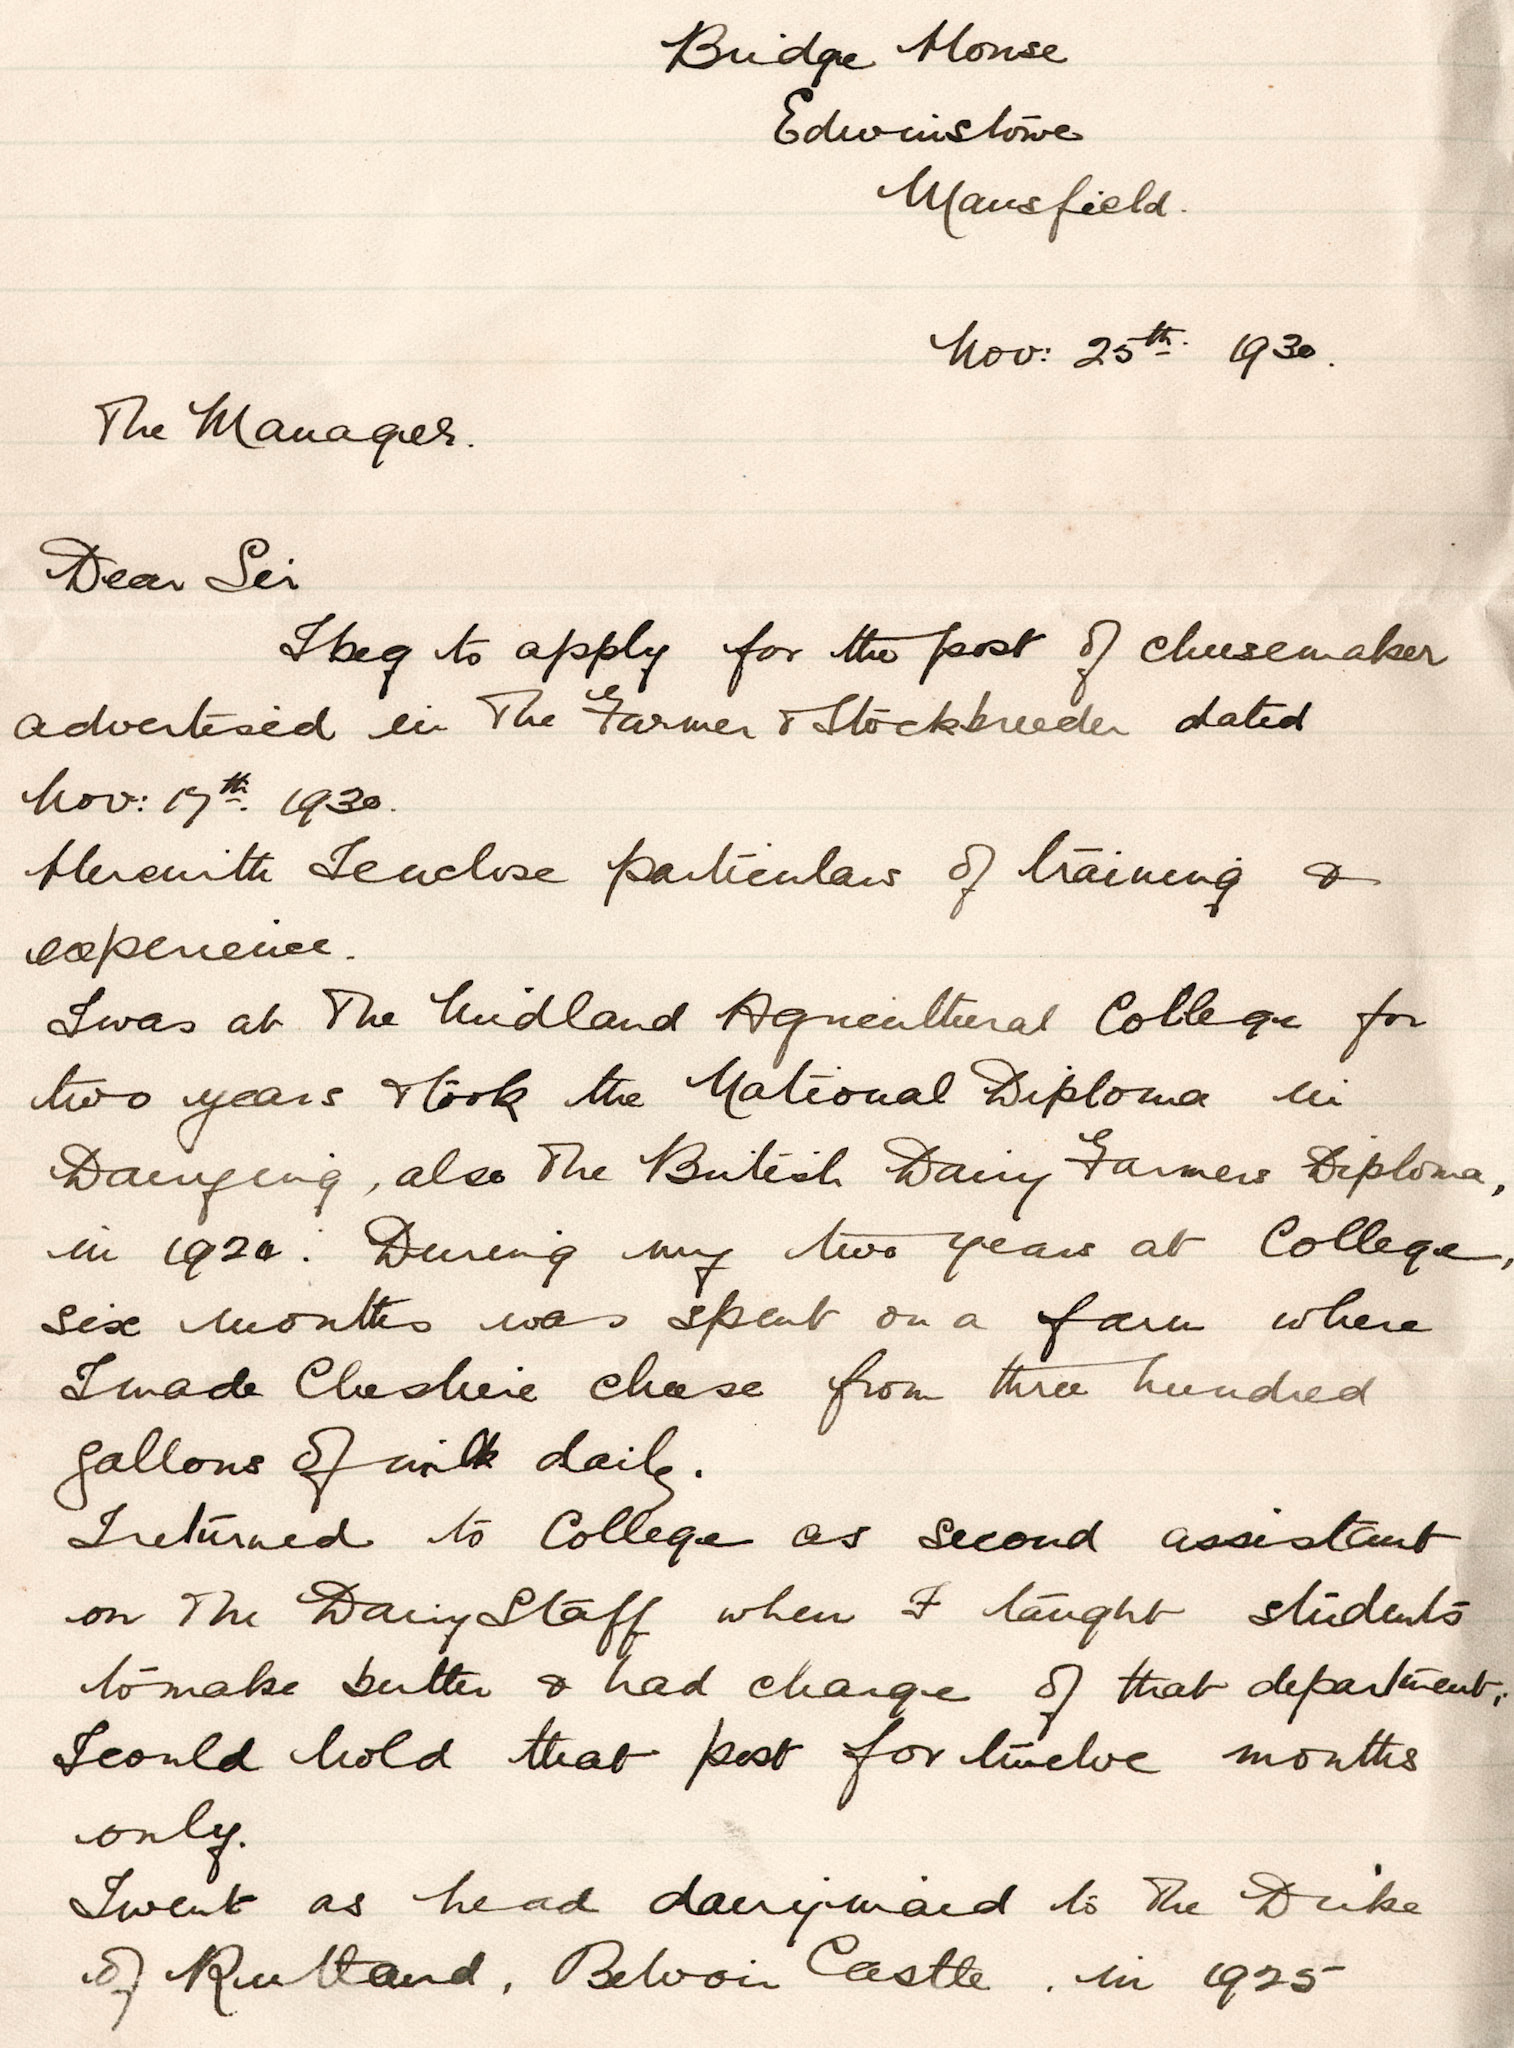 Bridge House
Edwinstowe
Mansfield.
Nov: 25th. 1930.
The Manager.
Dear Sir
I beg to apply for the post of cheesemaker
advertised in The Farmer & Stockbreeder dated
Nov: 17th. 1930.
Herewith I enclose particulars of training &
experience.
I was at The Midland Agricultural College for
two years & took the National Diploma in
Dairying, also The British Dairy Farmers Diploma,
in . During my two years at College,
six months was spent on a farm where
I made Cheshire cheese from three hundred
gallons of milk daily.
I returned to College as second assistant
on The Dairy Staff when I taught students
to make butter & had charge of that department.
I could hold that post for twelve months
only.
I went as head dairymaid to The Duke
of Rutland, Belvoir Castle, in 1925